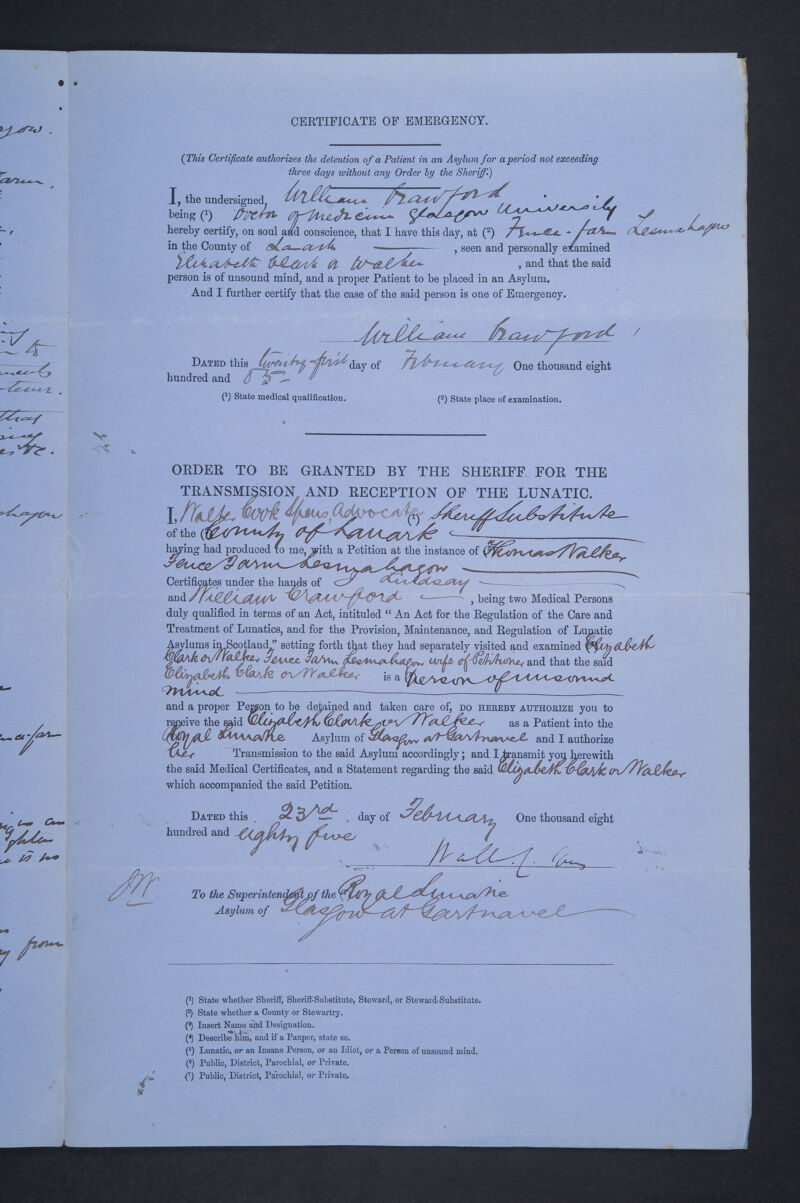 CERTIFICATE OF EMERGENCY.
(This Certificate authorizes the detention of a Patient in an Asylum for a period not exceeding
three days without any Order by the Sheriff.)
I, the undersigned, William Crawford
being (1) Doctor of Medicine Glasgow University
hereby certify, on soul and conscience, that I have this day, at (2) Fence-farm Lesmahagow
in the County of Lanark , seen and personally examined
Elizabeth Clark or Walker , and that the said
person is of unsound mind, and a proper Patient to be placed in an Asylum.
And I further certify that the case of the said person is one of Emergency.
William Crawford
DATED this twenty-first day of February One thousand eight
hundred and 85
(1) State medical qualification. (2) State place of examination.
ORDER TO BE GRANTED BY THE SHERIFF FOR THE
TRANSMISSION AND RECEPTION OF THE LUNATIC.
I, Walter Cook Spens, Advocate (1) Sheriff Substitute
of the County of Lanark
having had produced to me, with a Petition at the instance of Thomas Walker
Fence Farm Lesmahagow
Certificates under the hands of J Lindsay
and William Crawford , being two Medical Persons
duly qualified in terms of an Act, intituled "An Act for the Regulation of the Care and
Treatment of Lunatics, and for the Provision, Maintenance, and Regulation of Lunatic
Asylums in Scotland," setting forth that they had separately visited and examined Elizabeth
Clark or Walker Fence Farm Lesmahagow wife of Petitioner and that the said
Elizabeth Clark or Walker is a person of unsound
mind
and a proper Person to be detained and taken care of, DO HEREBY AUTHORIZE you to
receive the said Elizabeth Clark or Walker as a Patient into the
Royal Lunatic Asylum of Glasgow at Gartnavel and I authorize
her Transmission to the said Asylum accordingly; and I transmit you herewith
the said Medical Certificates, and a Statement regarding the said Elizabeth Clark or Walker
which accompanied the said Petition.
DATED this 23rd day of February One thousand eight
hundred and eighty five
Walter C. Spens
To the Superintendent of the Royal Lunatic
Asylum of Glasgow at Gartnavel
(1) State whether Sheriff, Sheriff-Substitute, Steward, or Steward-Substitute.
(2) State whether a County or Stewartry.
(3) Insert Name and Designation.
(4) Describe him, and if a Pauper, state so.
(5) Lunatic, or an Insane Person, or an Idiot, or a Person of unsound mind.
(6) Public, District, Parochial, or Private.
(7) Public, District, Parochial, or Private.